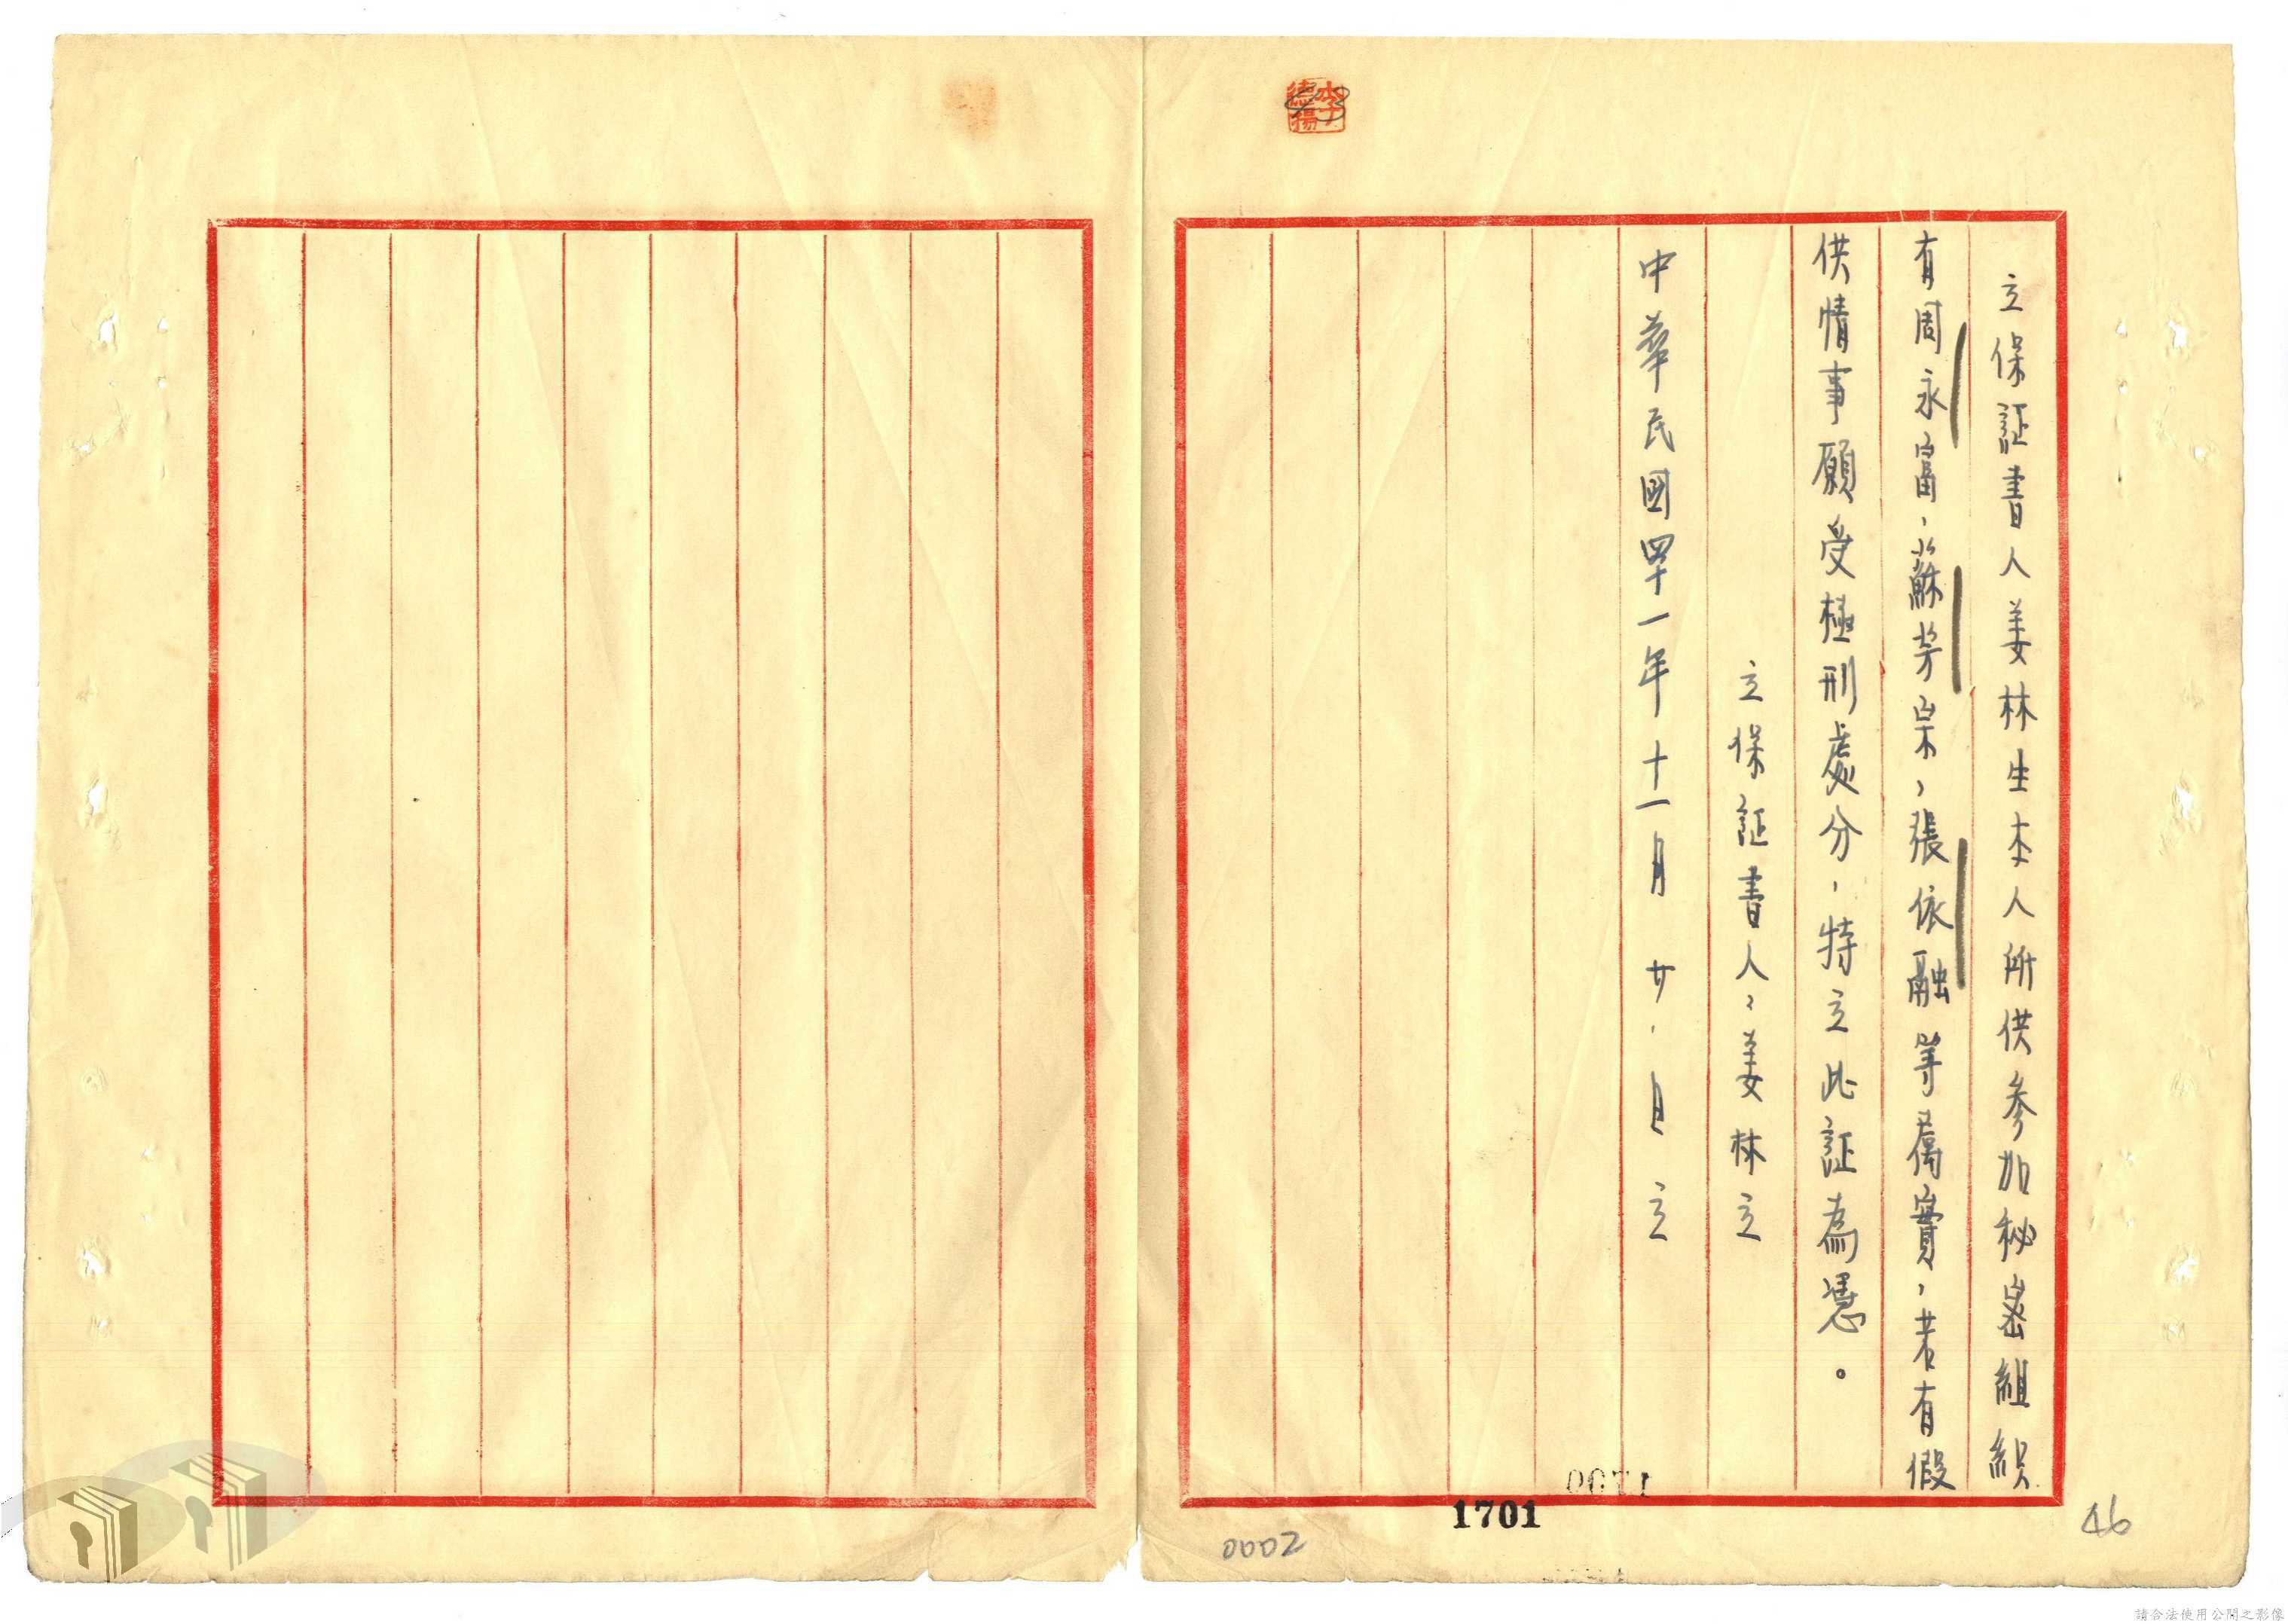 立保証書人姜林生本人所供參加秘密組織
有周永富，蘇芳宗，張依融等屬實，若有假
供情事願受極刑處分，特立此証為憑。
立保証書人：姜林立
中華民國四十一年十一月廿日立
李德揚
0071
1701
0002
46
請合法使用公開之影像